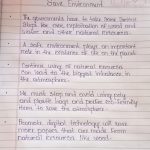 Save Environment
The governments have to take some serious
steps like over exploitation of wood and
water and other natural resources.
A safe environment plays an important
role in the existence of life on the planet.
Continue using of natural resources
can lead to the biggest imbalance in
the atmosphere.
We must stop and avoid using poly
and plastic bags and prefer eco-friendly
items to save the atmosphere.
Promote digital technology will save
more papers that are made from
natural resources like wood.